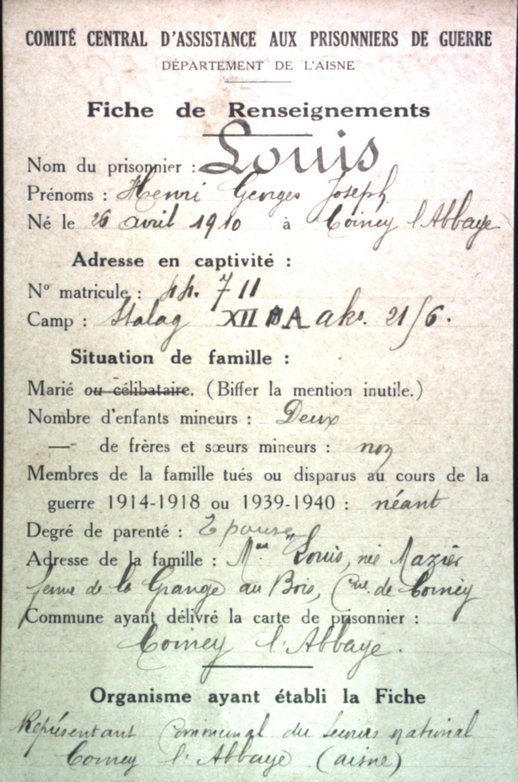 COMITÉ CENTRAL D'ASSISTANCE AUX PRISONNIERS DE GUERRE
DÉPARTEMENT DE L'AISNE
Fiche de Renseignements
Nom du prisonnier : Louis
Prénoms : Henri Georges Joseph
Né le 26 avril 1910 à Coincy l'Abbaye
Adresse en captivité :
N° matricule : 44.711
Camp : Stalag XII A ako. 21/6.
Situation de famille :
Marié ou célibataire. (Biffer la mention inutile.)
Nombre d'enfants mineurs : Deux
— de frères et sœurs mineurs : non
Membres de la famille tués ou disparus au cours de la
guerre 1914-1918 ou 1939-1940 : néant
Degré de parenté : Epouse
Adresse de la famille : Mme Louis, née Mazier
ferme de la Grange au Bois, Cne de Coincy
Commune ayant délivré la carte de prisonnier :
Coincy l'Abbaye.
Organisme ayant établi la Fiche
Représentant Communal du Secours national
Coincy l'Abbaye (aisne)